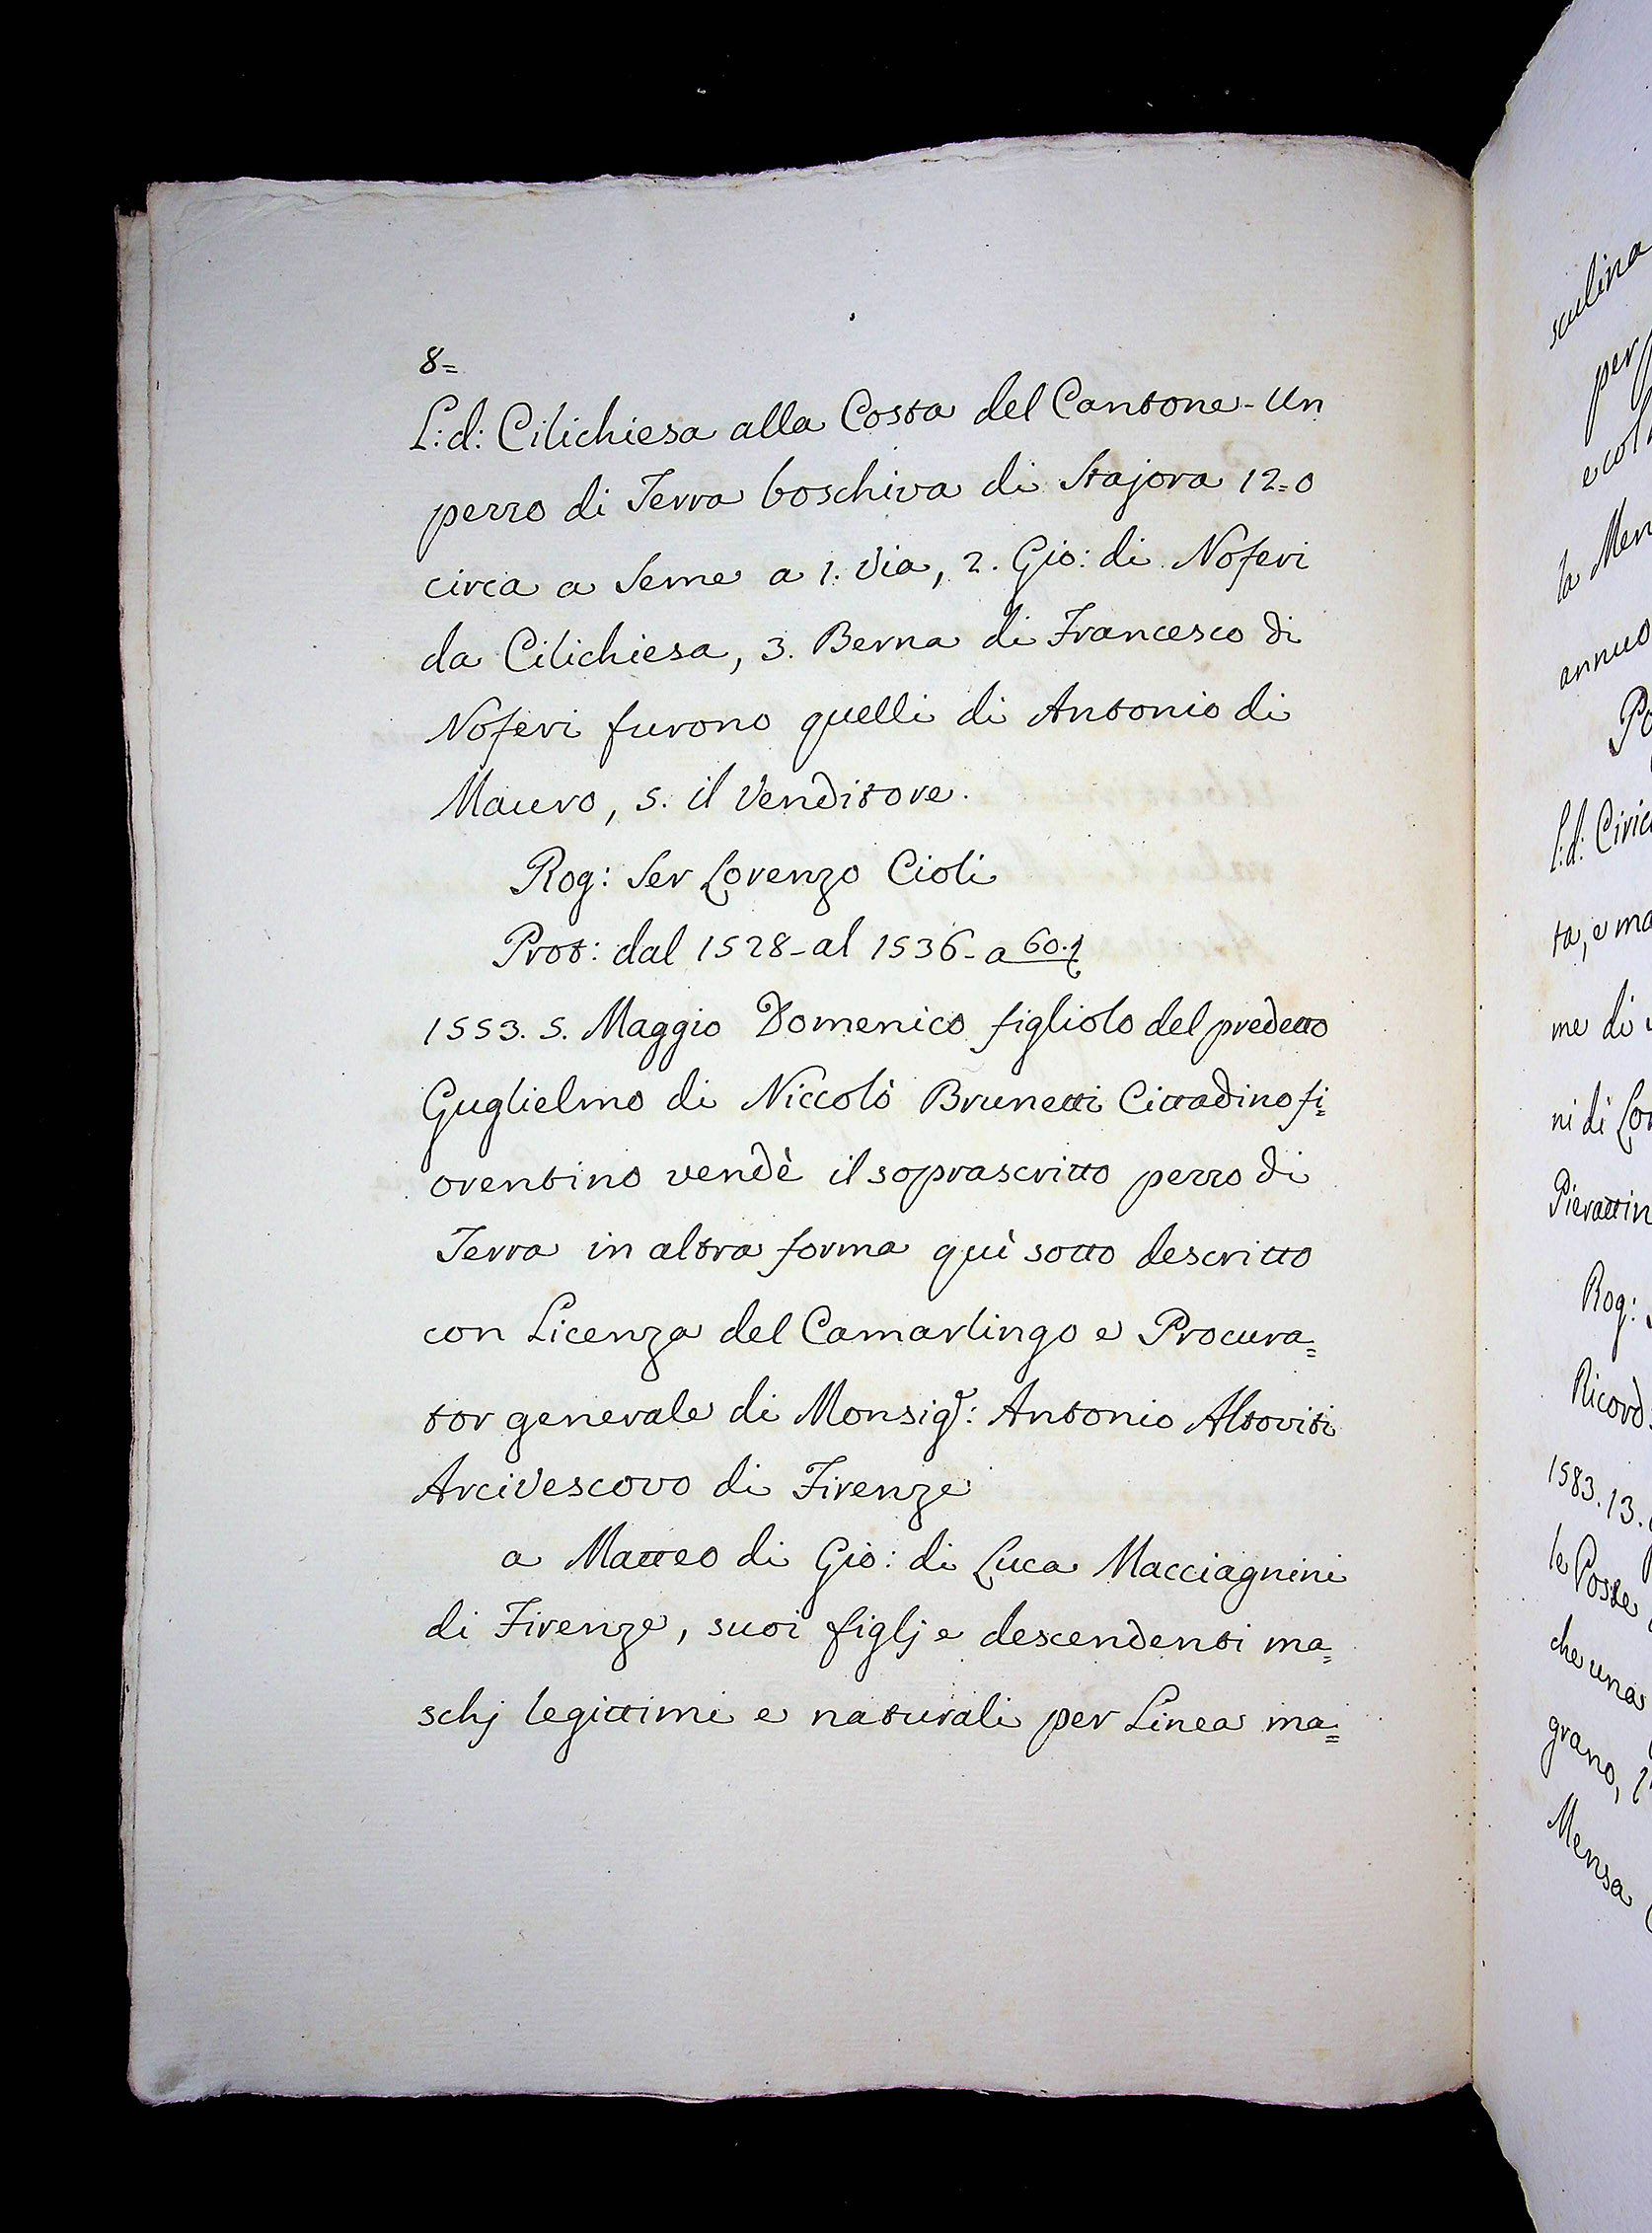 8=
L:d: Cilichiesa alla Costa del Cantone - Un
pezzo di Terra boschiva di Stajora 12=0
circa a Seme a 1. Via, 2. Gio: di Noferi
da Cilichiesa, 3. Berna di Francesco di
Noferi furono quelli di Antonio di
Mauro, 5. il Venditore.
Rog: Ser Lorenzo Cioli
Prot: dal 1528 - al 1536 - a 60.
1553. 5. Maggio Domenico figliolo del predetto
Guglielmo di Niccolò Brunetti Cittadino fi=
orentino vendè il soprascritto pezzo di
Terra in altra forma quì sotto descritto
con Licenza del Camarlingo e Procura=
tor generale di Monsig.r: Antonio Altoviti
Arcivescovo di Firenze
a Matteo di Gio: di Luca Macciagnini
di Firenze, suoi figlj e descendenti ma=
schj legittimi e naturali per Linea ma=
sculina
per
la
annuo
L:d:
ta, e
me di
ni di
Rog:
1583. 13.
le Poste
che una
grano,
Mensa